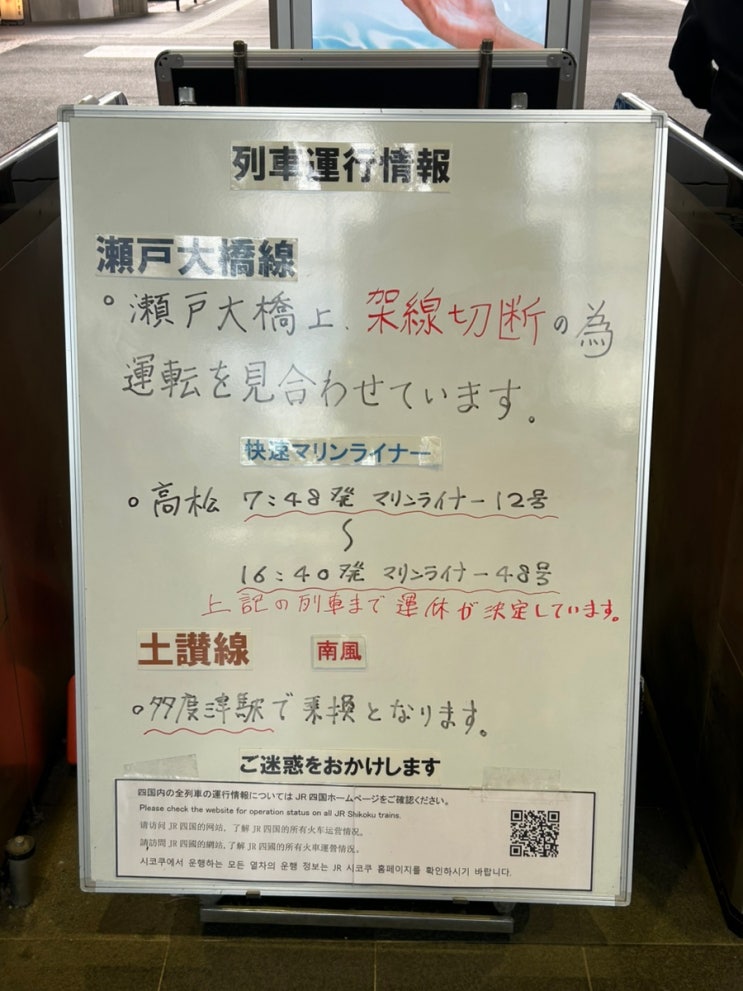 列車運行情報
瀬戸大橋線
。瀬戸大橋上、架線切断の為
運転を見合わせています。
快速マリンライナー
。高松 7:48発 マリンライナー12号
〜
16:40発 マリンライナー48号
上記の列車まで運休が決定しています。
土讃線 南風
。多度津駅で乗換となります。
ご迷惑をおかけします
四国内の全列車の運行情報についてはJR四国ホームページをご確認ください。
Please check the website for operation status on all JR Shikoku trains.
请访问JR四国的网站,了解JR四国的所有火车运营情况。
請訪問JR四國的網站,了解JR四國的所有火車運營情況。
시코쿠에서 운행하는 모든 열차의 운행 정보는 JR 시코쿠 홈페이지를 확인하시기 바랍니다.